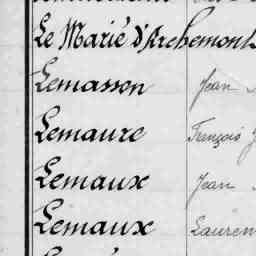 Le Marié d'Archemont
Lemasson Jean
Lemaure François J
Lemaux Jean
Lemaux Lauren